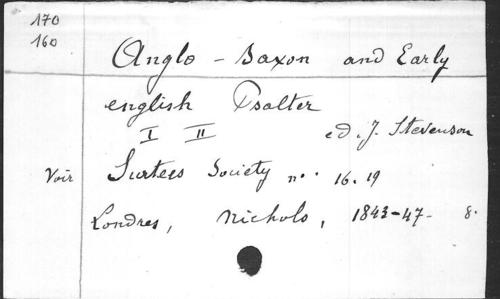 170
160
Anglo - Saxon and Early
english Psalter
I II ed. J. Stevenson
Voir Surtees Society n°. 16. 19
Londres, Nichols, 1843-47- 8.